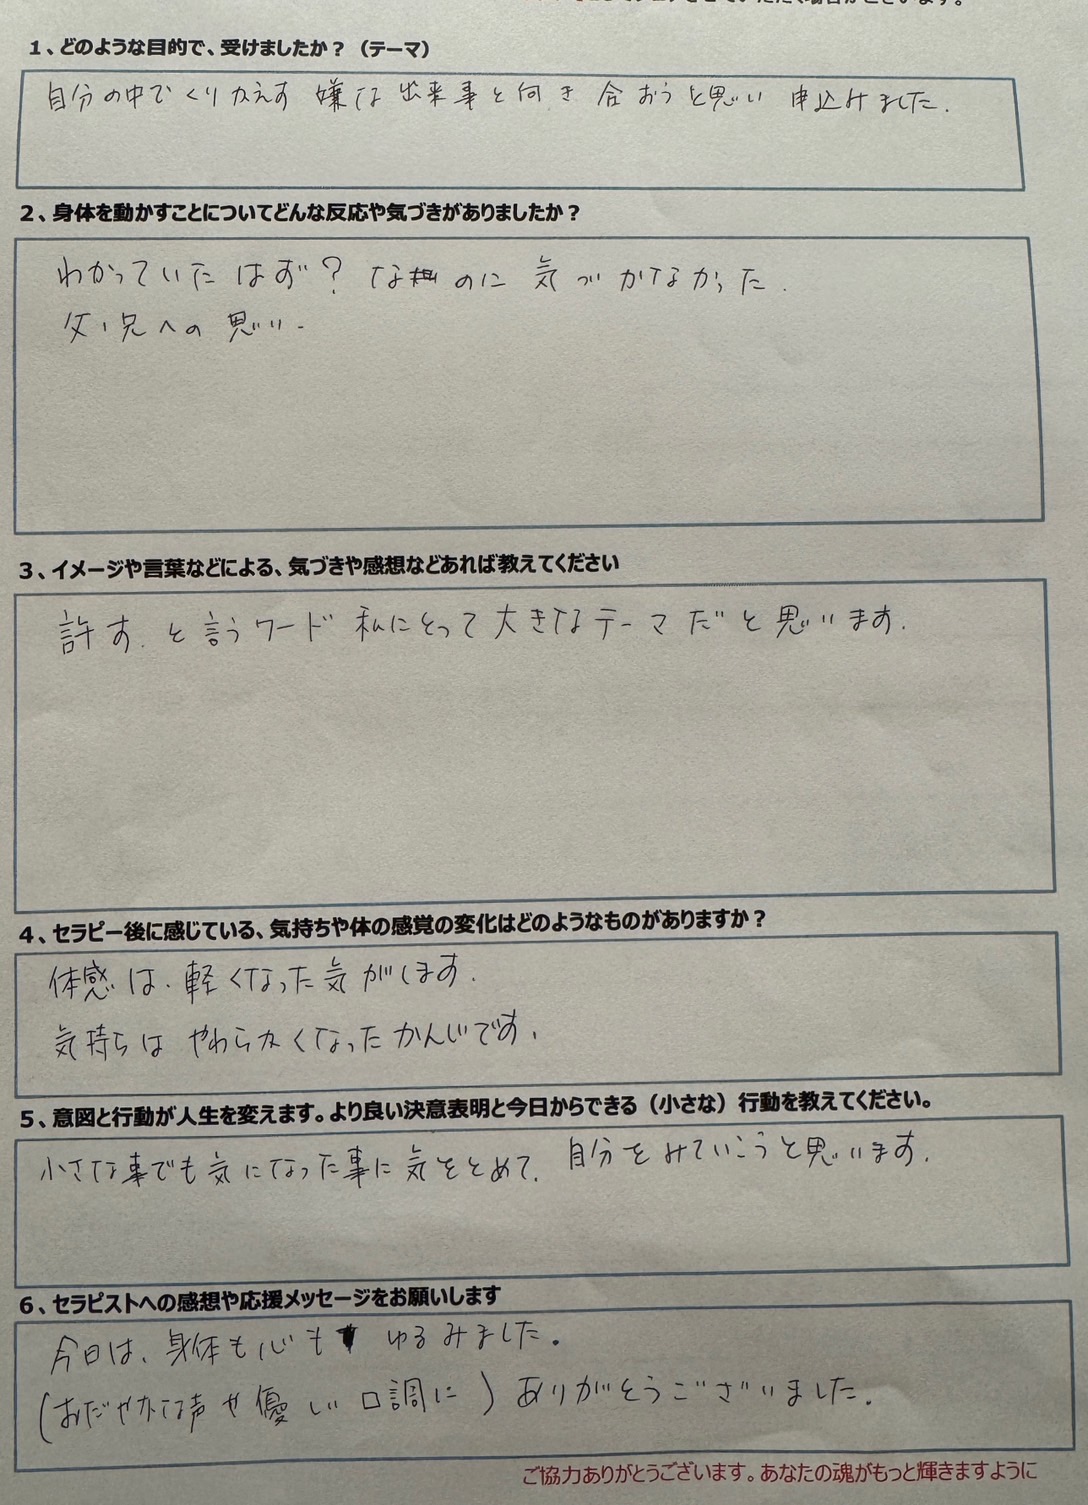 １、どのような目的で、受けましたか？（テーマ）
自分の中でくりかえす 嫌な出来事と向き合おうと思い 申込みました.
２、身体を動かすことについてどんな反応や気づきがありましたか？
わかっていたはず？なのに 気づかなかった.
父、兄への思い.
３、イメージや言葉などによる、気づきや感想などあれば教えてください
許す. と言うワード 私にとって大きなテーマだと思います.
４、セラピー後に感じている、気持ちや体の感覚の変化はどのようなものがありますか？
体感は、軽くなった気がします.
気持ちは やわらかくなったかんじです.
５、意図と行動が人生を変えます。より良い決意表明と今日からできる（小さな）行動を教えてください。
小さな事でも気になった事に気をとめて. 自分をみていこうと思います.
６、セラピストへの感想や応援メッセージをお願いします
今日は、身体も心も ゆるみました。
(おだやかな声や優しい口調に) ありがとうございました.
ご協力ありがとうございます。あなたの魂がもっと輝きますように